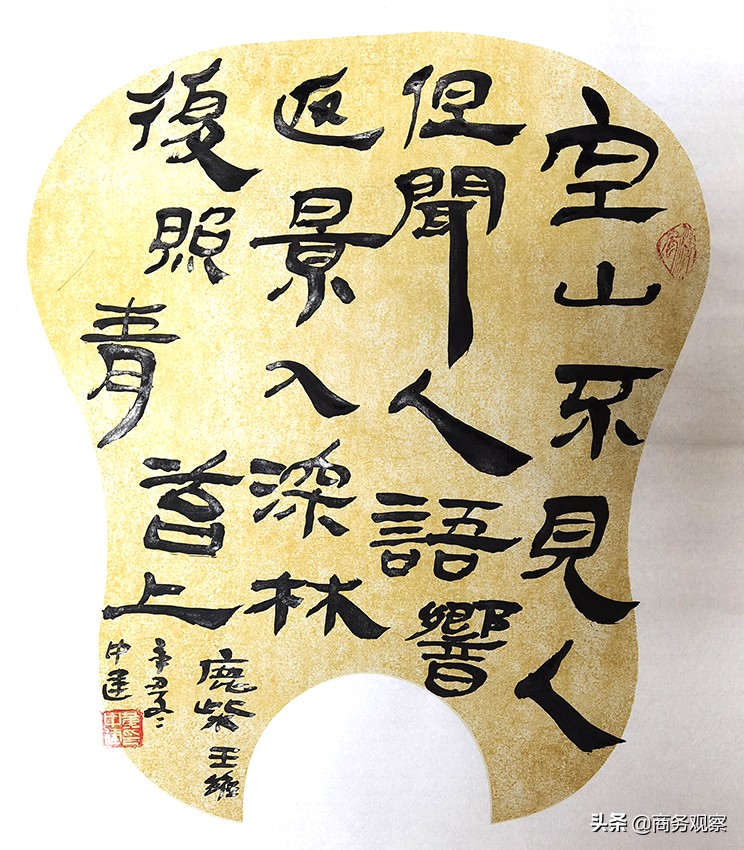 空山不見人
但聞人語響
返景入深林
復照青苔上
鹿柴 王維
辛丑冬
中建
头条 @商务观察